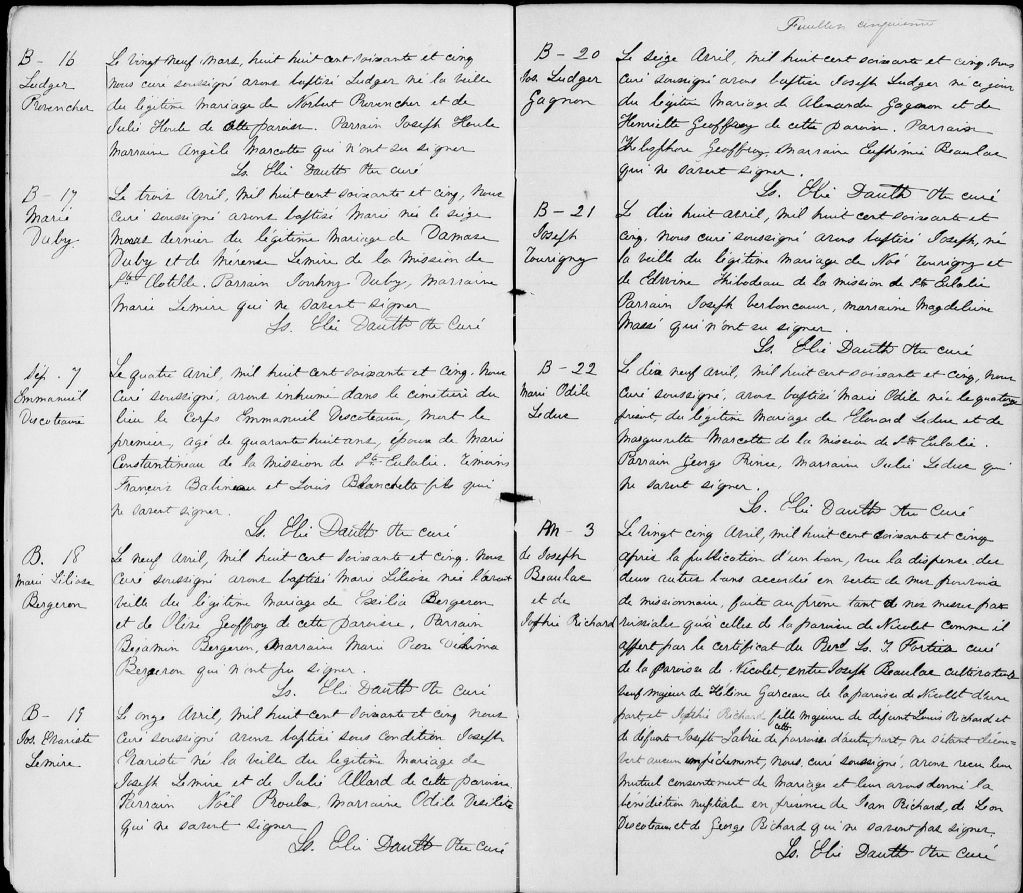 B - 16
Ludger
Provencher
Le vingt neuf Mars, huit huit cent soixante et cinq
nous curé soussigné avons baptisé Ludger né la veille
du légitime mariage de Norbert Provencher et de
Julie Houle de cette paroisse. Parrain Joseph Houle
Marraine Angèle Marcotte qui n'ont su signer
Ls. Elie Dauth Ptre curé
B - 17
Marie
Duby
Le trois Avril, mil huit cent soixante et cinq, nous
Curé soussigné avons baptisé Marie née le seize
Mars dernier du légitime mariage de Damase
Duby et de Mérense Lemire de la mission de
Ste Clotilde. Parrain Duby, marraine
Marie Lemire qui ne savent signer
Ls. Elie Dauth Ptre Curé
Sép. 7
Emmanuel
Descoteaux
Le quatre Avril, mil huit cent soixante et cinq. Nous
Curé soussigné, avons inhumé dans le cimetière du
lieu le Corps Emmanuel Descoteaux, mort le
premier, agé de quarante huit ans, époux de Marie
Constantineau de la mission de Ste Eulalie. Temoins
François Babineau et Louis Blanchette fils qui
ne savent signer.
Ls. Elie Dauth Ptre curé
B. 18
Marie Séliose
Bergeron
Le neuf Avril, mil huit cent soixante et cinq. Nous
Curé soussigné avons baptisé Marie Séliose née l'avant
veille du légitime mariage de Exilia Bergeron
et de Olive Geoffroy de cette paroisse, Parrain
Benjamin Bergeron, Marraine Marie Rose
Bergeron qui n'ont pu signer.
Ls. Elie Dauth Ptre curé
B - 19
Jos. Chariste
Lemire
Le onze Avril, Mil huit cent soixante et cinq nous
Curé soussigné avons baptisé sous condition Joseph
Chariste né la veille du légitime mariage de
Joseph Lemire et de Julie Allard de cette paroisse,
Parrain Noël Proulx, marraine Odile Desilets
qui ne savent signer
Ls. Elie Dauth Ptre curé
Feuillet cinquième
B - 20
Jos. Ludger
Gagnon
Le seize Avril, mil huit cent soixante et cinq, nous
Curé soussigné avons baptisé Joseph Ludger né ce jour
du légitime mariage de Alexandre Gagnon et de
Henriette Geoffroy de cette paroisse. Parrain
Thelesphore Geoffroy, Marraine Euphémie Beaulac
qui ne savent signer.
Ls. Elie Dauth Ptre curé
B - 21
Joseph
Tourigny
Le dix huit Avril, mil huit cent soixante et
cinq, nous curé soussigné avons baptisé Joseph, né
la veille du légitime mariage de Noé Tourigny et
de Edwine Thibodeau de la mission de Ste Eulalie
Parrain Joseph Verboncoeur, marraine Magdeleine
Massé qui n'ont su signer.
Ls. Elie Dauth Ptre curé
B - 22
Marie Odile
Leduc
Le dix neuf Avril, mil huit cent soixante et cinq, nous
Curé soussigné, avons baptisé Marie Odile née le quatorze
présent, du légitime Mariage de Edouard Leduc et de
Marguerette Marcotte de la Mission de Ste Eulalie.
Parrain George Prince, Marraine Julie Leduc qui
ne savent signer.
Ls. Elie Dauth Ptre curé
M - 3
de Joseph
Beaulac
et de
Sophie Richard
Le vingt cinq Avril, mil huit cent soixante et cinq
après la publication d'un ban, vue la dispense des
deux autres bans accordée en vertu de mes pouvoirs
de missionnaire, faite au prône tant de nos messes pa-
roissiale qu'à celles de la paroisse de Nicolet comme il
appert par le certificat du Revd Ls. T. Fortier curé
de la paroisse de Nicolet, entre Joseph Beaulac cultivateur
veuf majeur de Hélène Garceau de la paroisse de Nicolet d'une
part, et Sophie Richard fille majeure de defunt Louis Richard et
de défunte Joseph Labrie de cette paroisse d'autre part, ne s'étant décou-
vert aucun empêchement, nous, curé soussigné, avons recu leur
mutuel consentement de mariage et leur avons donné la
bénédiction nuptiale en présence de Jean Richard, de Léon
Descoteaux, et de George Richard qui ne savent pas signer.
Ls. Elie Dauth Ptre curé